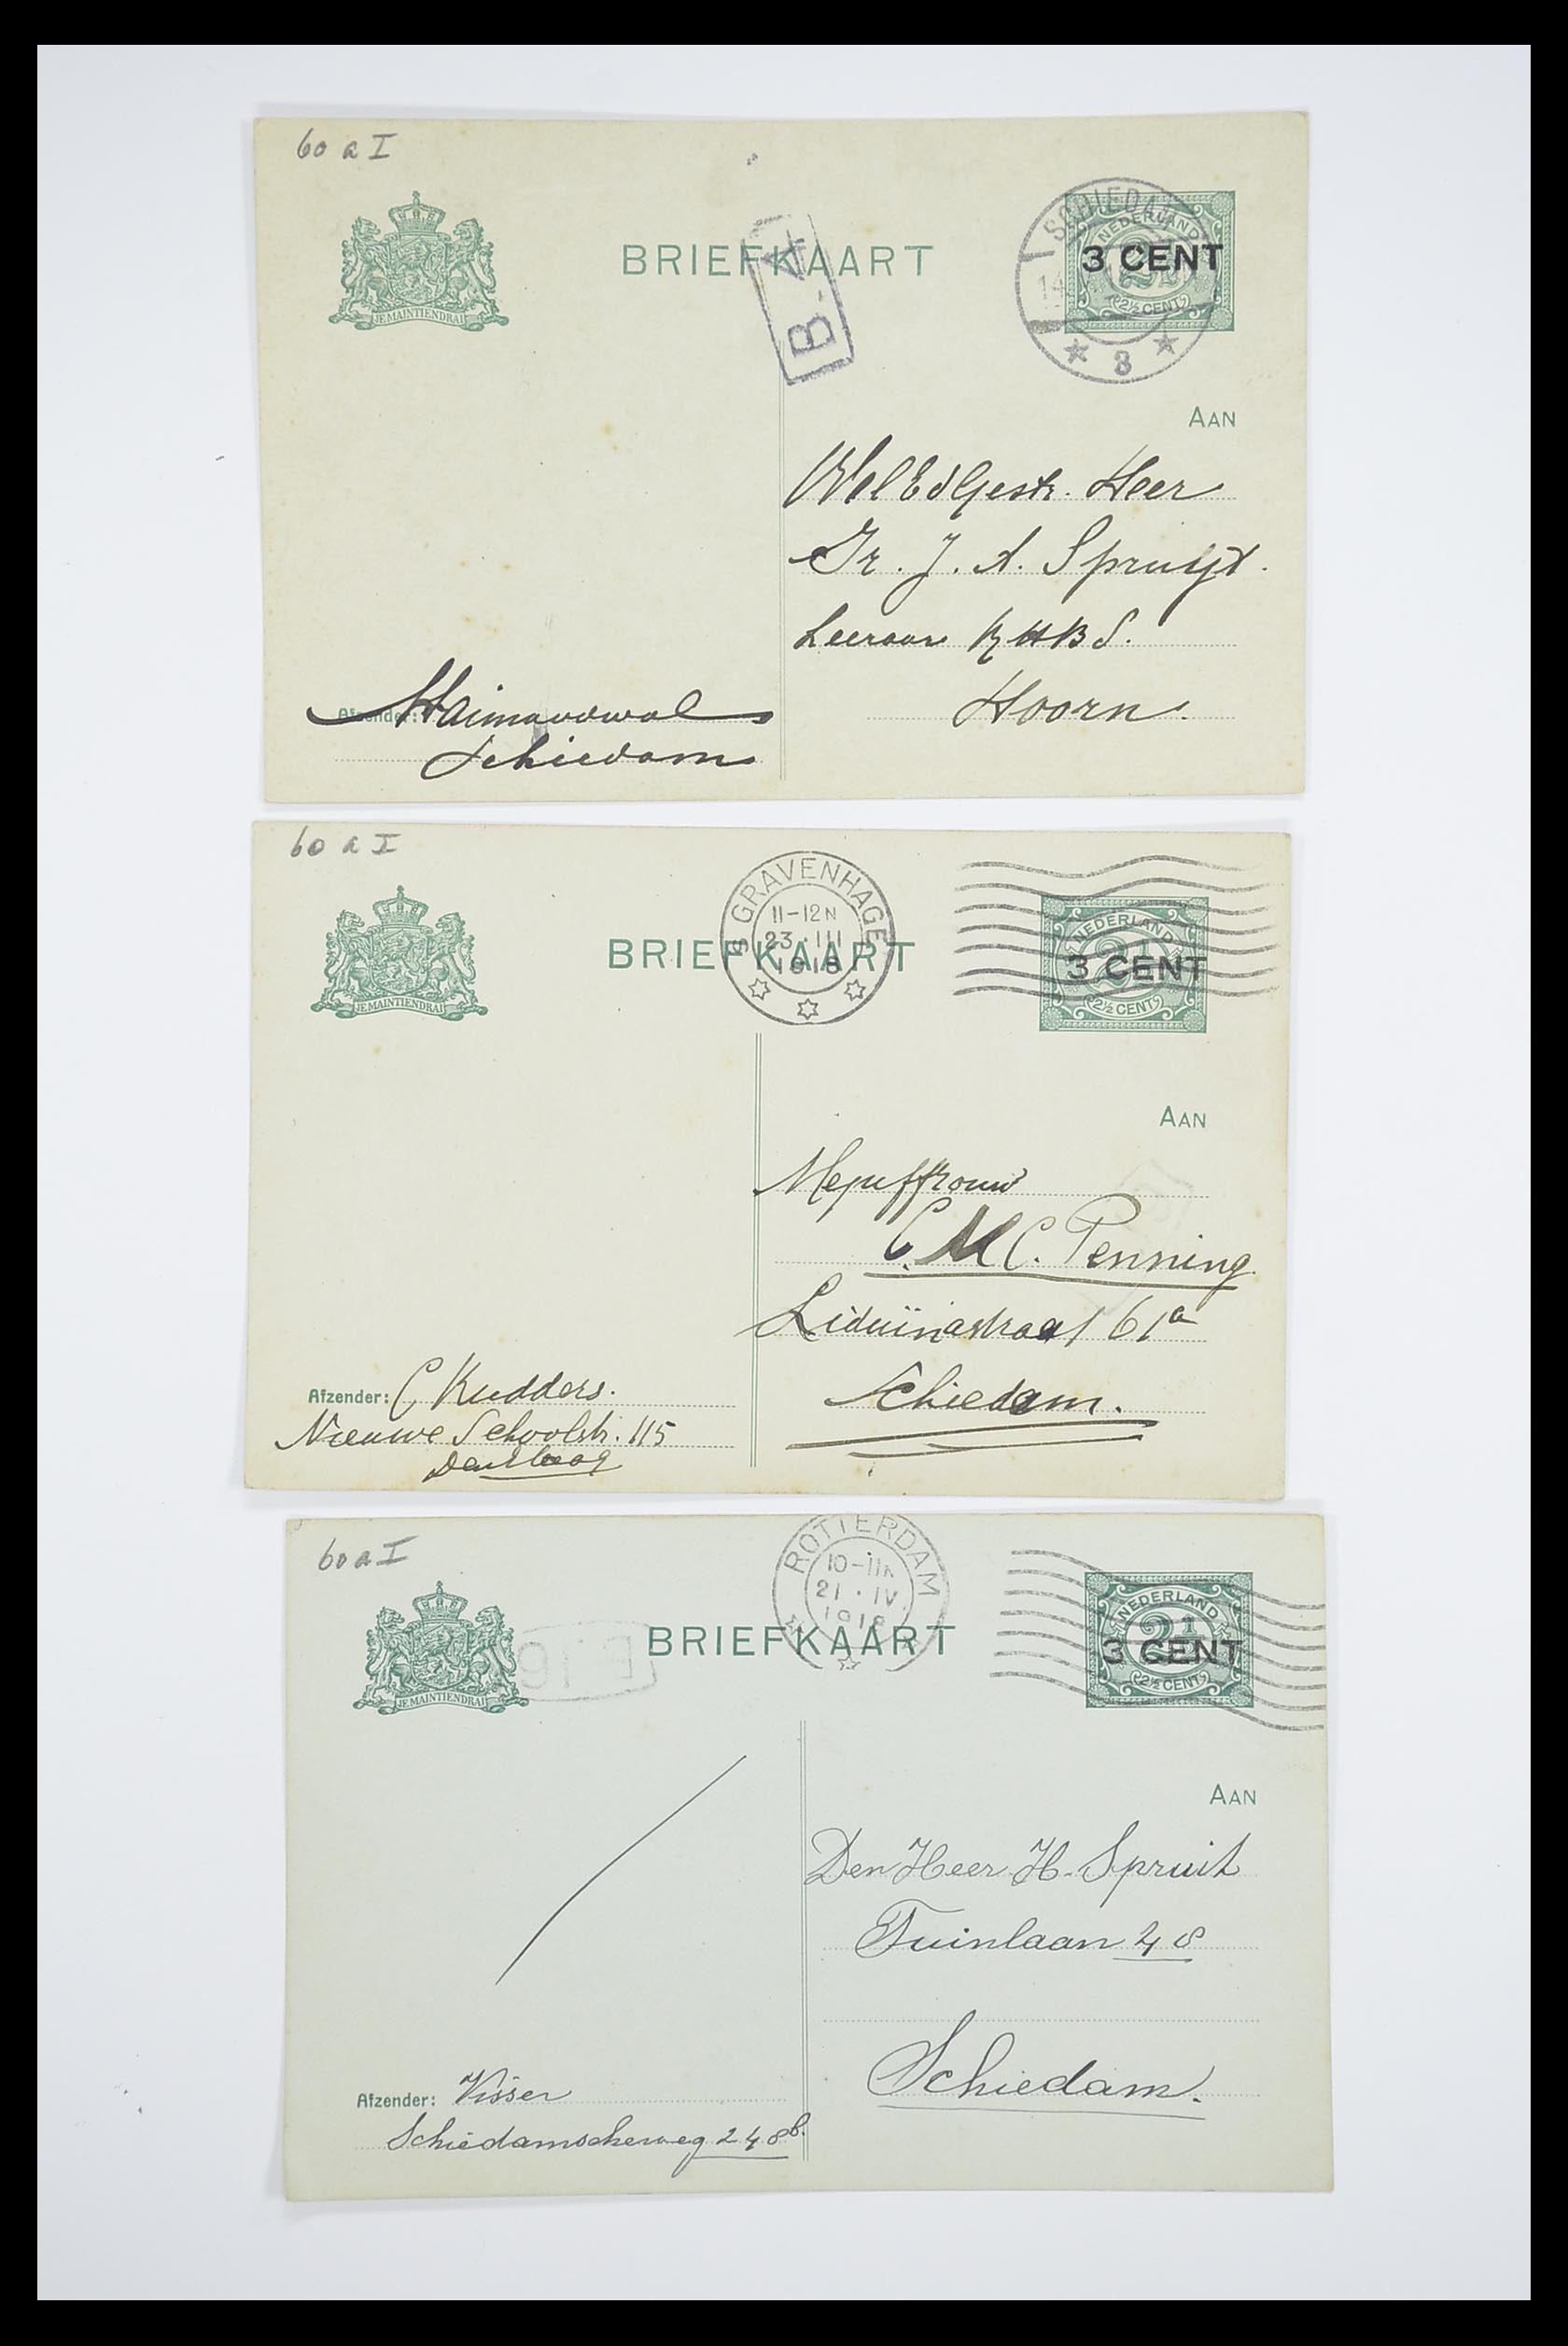 60 a I
JE MAINTIENDRAI
BRIEFKAART
B-4
SCHIEDAM
14
3
NEDERLAND
3 CENT
2½ CENT
AAN
WelEdGestr. Heer
Ir. J. A. Spruijt.
Leeraar R H B S.
Hoorn.
Afzender:
Schiedam
60 a I
JE MAINTIENDRAI
BRIEFKAART
'S GRAVENHAGE
11-12N
23·III
1918
NEDERLAND
2½
3 CENT
2½ CENT
AAN
Mejuffrouw
C. M. C. Penning
Liduïnastraat 61a
Schiedam.
Afzender: C Kudders.
Nieuwe Schoolstr. 115
Den Haag
60 a I
JE MAINTIENDRAI
BRIEFKAART
ROTTERDAM
10-11N
21·IV
1918
NEDERLAND
2½
3 CENT
2½ CENT
AAN
Den Heer H. Spruit
Tuinlaan 48
Schiedam.
Afzender: Visser
Schiedamscheweg 248b.